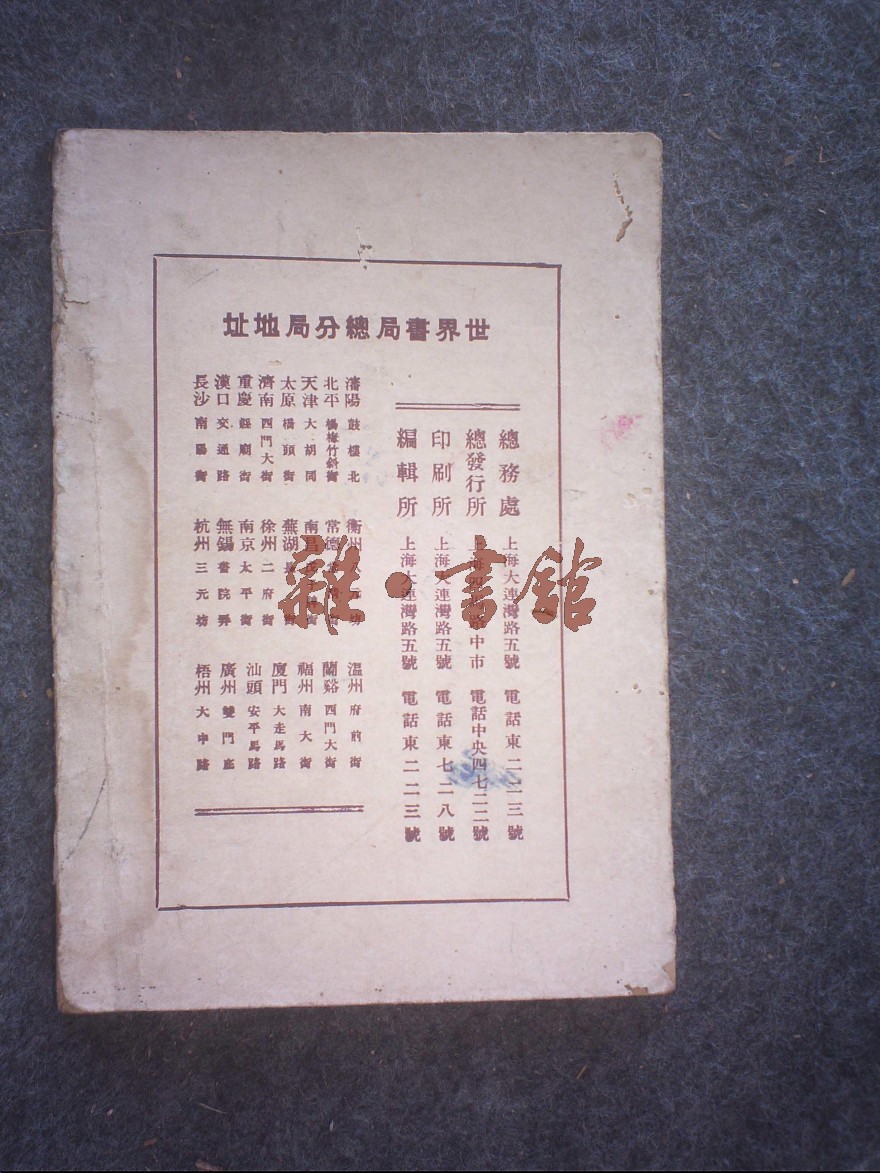 世界書局總分局地址
總務處 上海大連灣路五號 電話東二二三號
總發行所 上海四路中市 電話中央四七二二號
印刷所 上海大連灣路五號 電話東七二八號
編輯所 上海大連灣路五號 電話東二二三號
瀋陽 鼓樓北
北平 楊梅竹斜街
天津 大胡同
太原 橋頭街
濟南 西門大街
重慶 縣廟街
漢口 交通路
長沙 南陽街
衡州 八元坊
常德
南昌
蕪湖 長街
徐州 二府街
南京 太平街
無錫 書院弄
杭州 三元坊
溫州 府前街
蘭谿 西門大街
福州 南大街
廈門 大走馬路
汕頭 安平馬路
廣州 雙門底
梧州 大中路
雜·書館